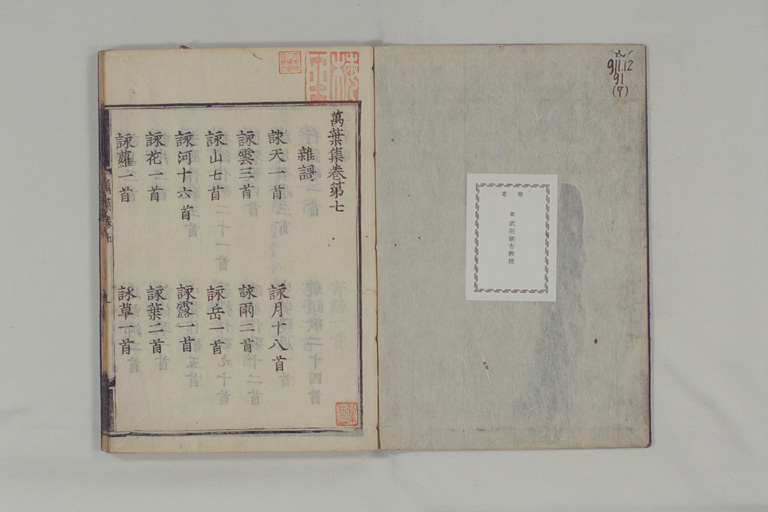 911.12
91
(7)
寄贈
武田祐吉教授
萬葉集卷第七
雜謌
詠天一首
詠月十八首
詠雲三首
詠雨二首
詠山七首
詠岳一首
詠河十六首
詠露一首
詠花一首
詠葉二首
詠蘿一首
詠草一首